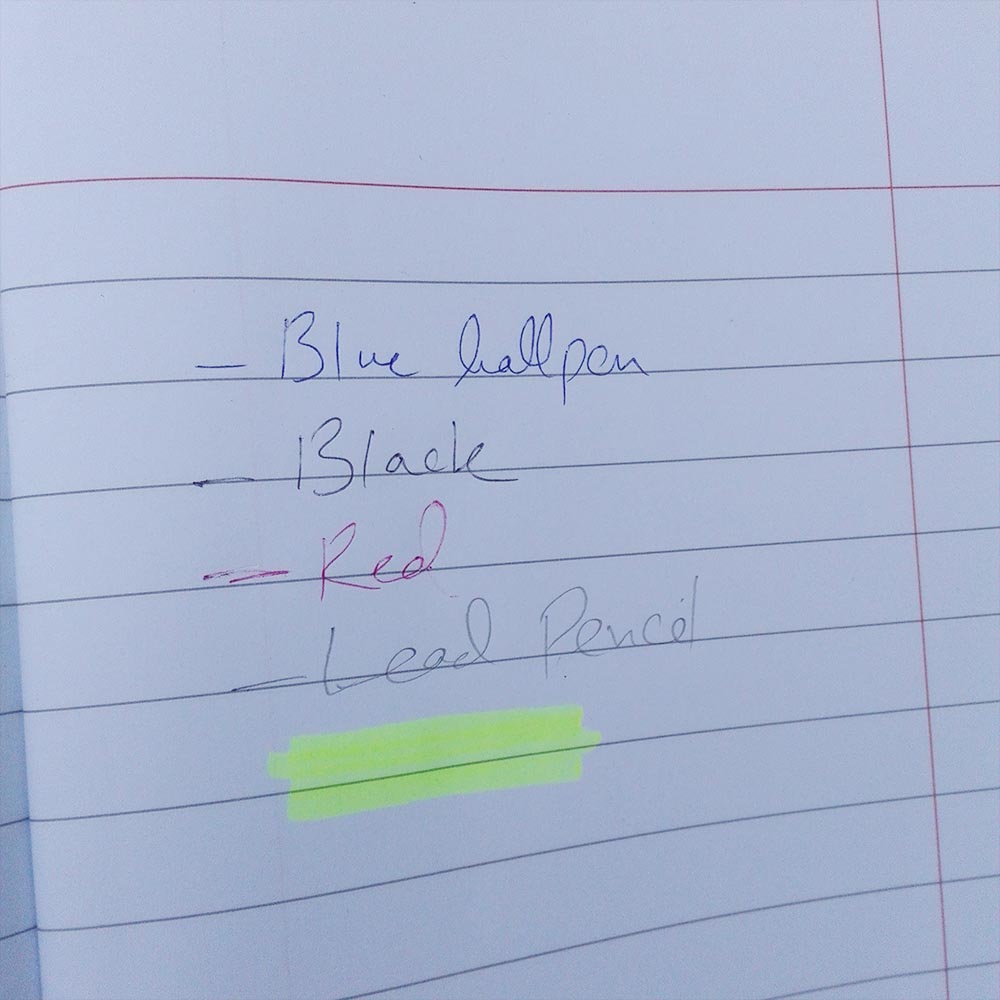 - Blue ballpen
- Black
- Red
- Lead Pencil